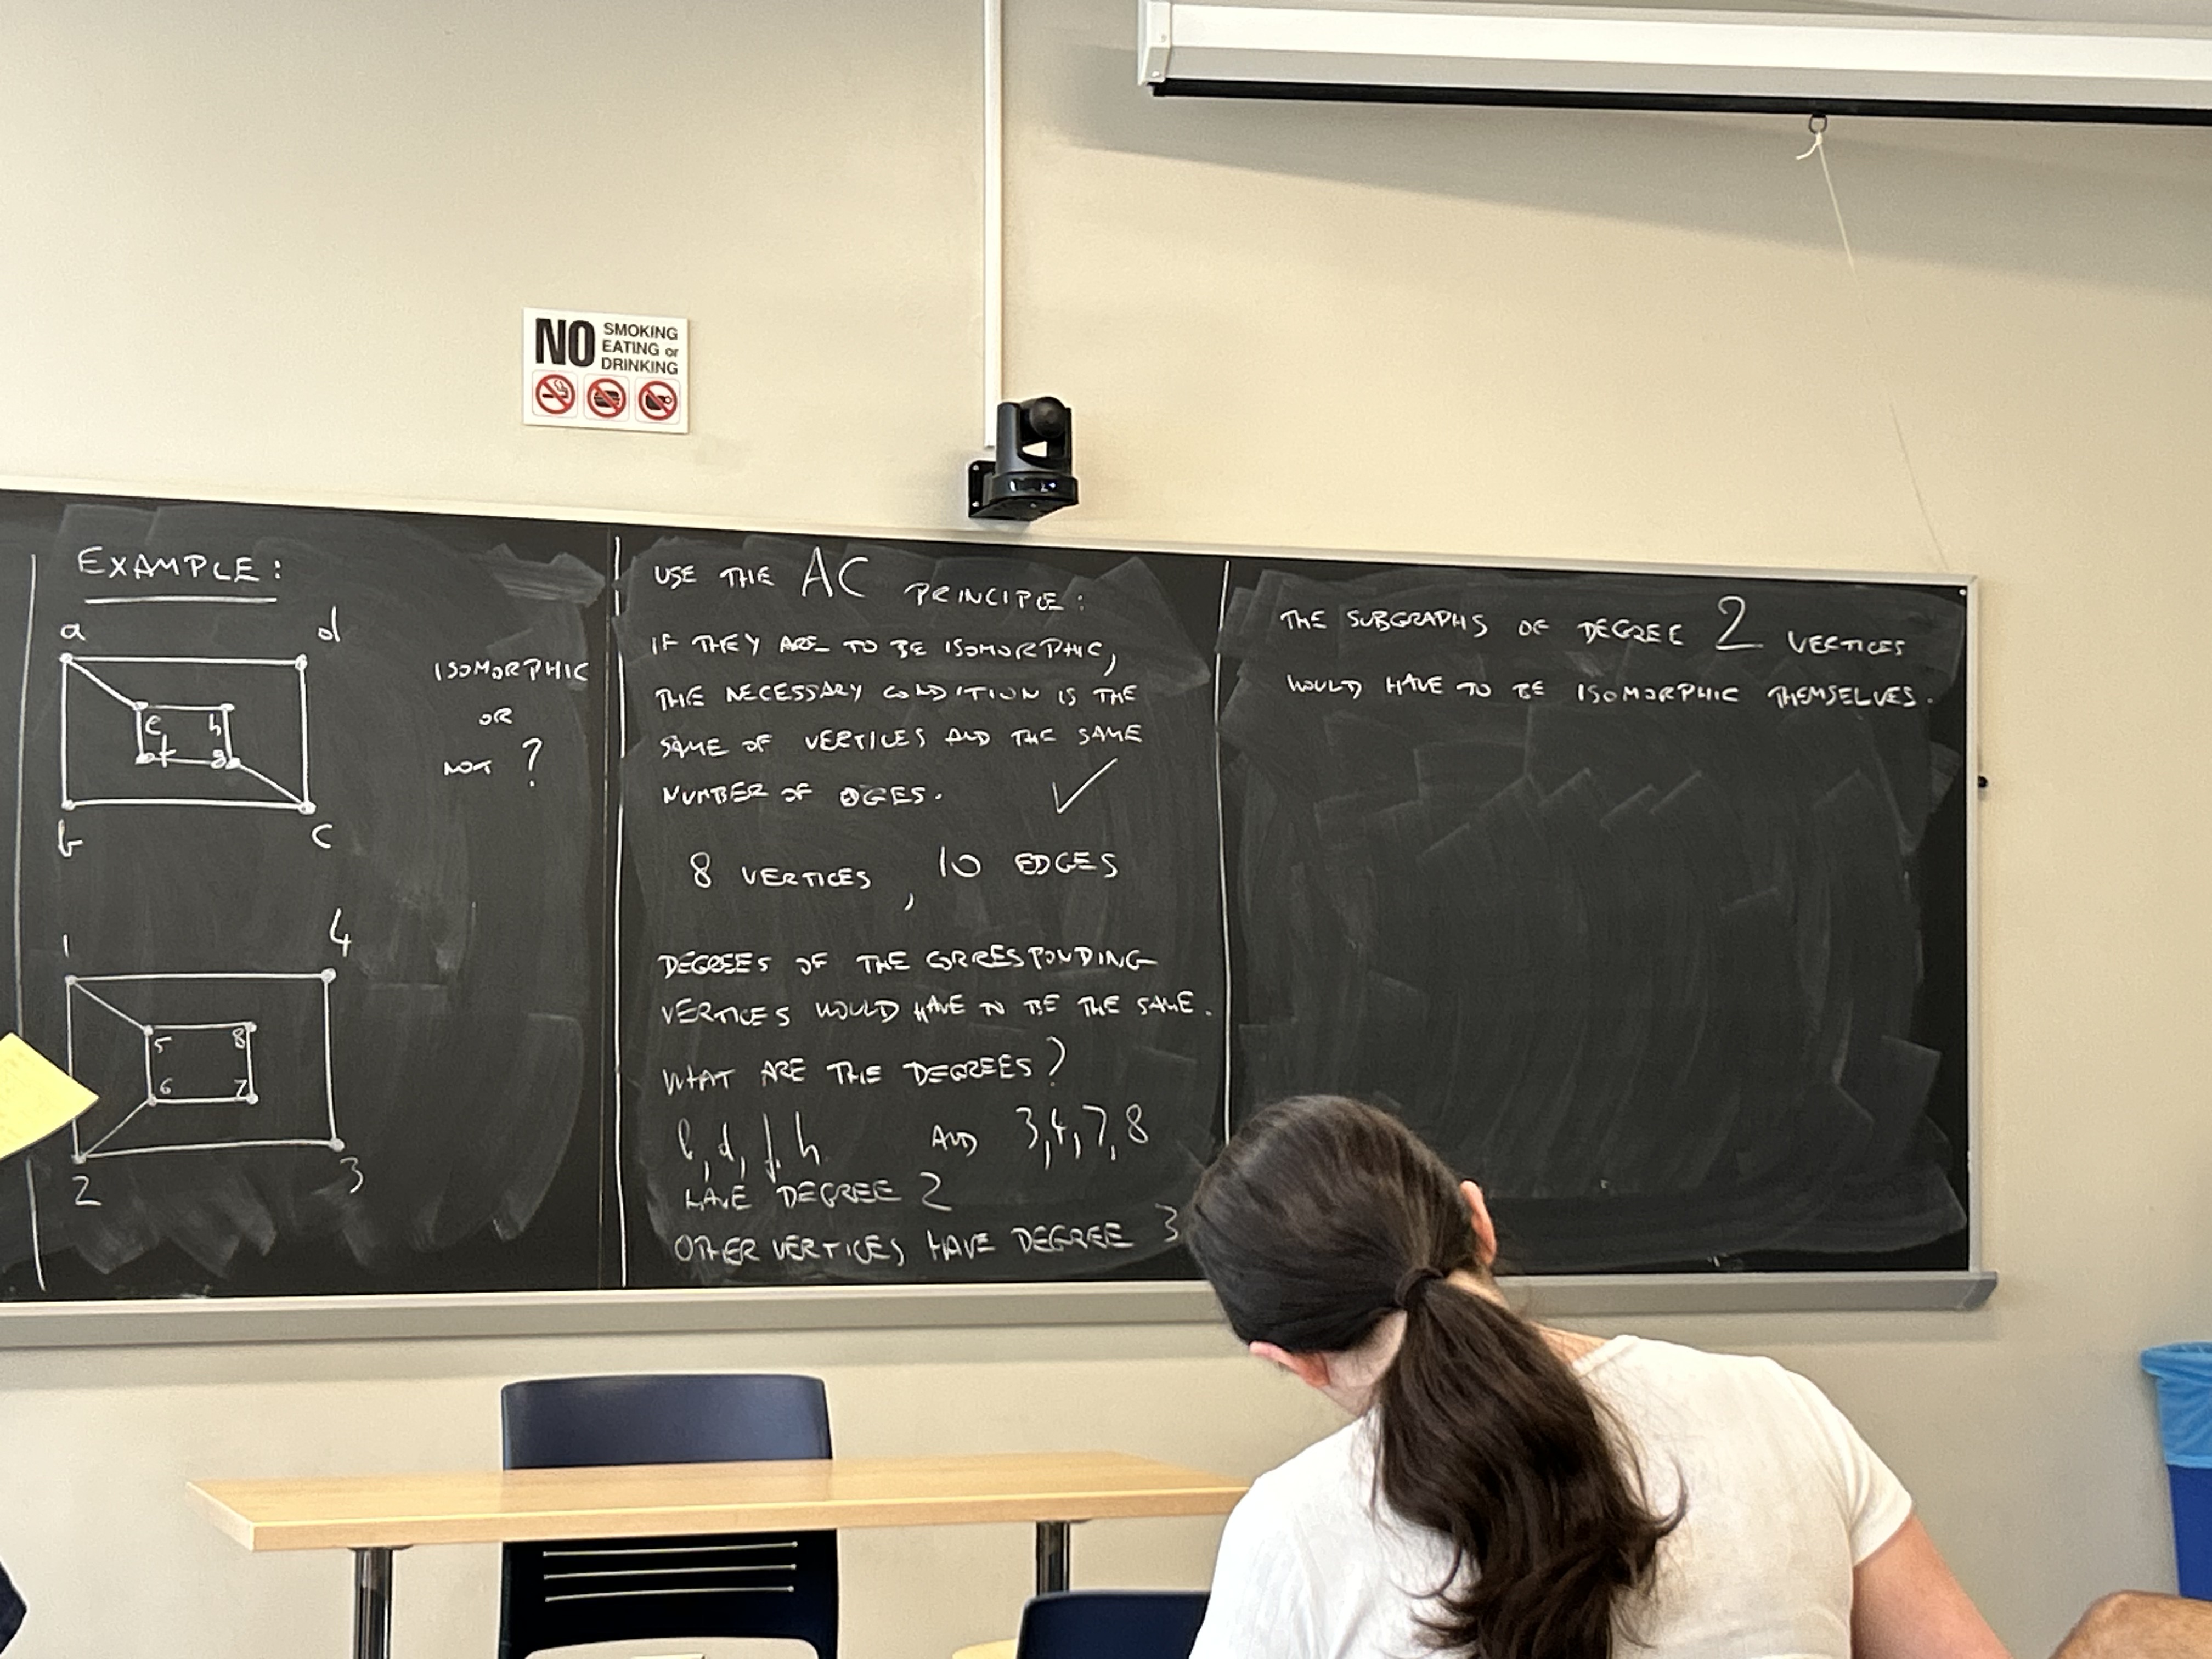 NO SMOKING
EATING or
DRINKING
EXAMPLE:
a d
e h
f g
b c
ISOMORPHIC
OR
NOT ?
1 4
5 8
6 7
2 3
USE THE AC PRINCIPLE:
IF THEY ARE TO BE ISOMORPHIC,
THE NECESSARY CONDITION IS THE
SAME OF VERTICES AND THE SAME
NUMBER OF EDGES. ✓
8 VERTICES, 10 EDGES
DEGREES OF THE CORRESPONDING
VERTICES WOULD HAVE TO BE THE SAME.
WHAT ARE THE DEGREES?
b, d, f, h AND 3,4,7,8
HAVE DEGREE 2
OTHER VERTICES HAVE DEGREE 3
THE SUBGRAPHS OF DEGREE 2 VERTICES
WOULD HAVE TO BE ISOMORPHIC THEMSELVES.